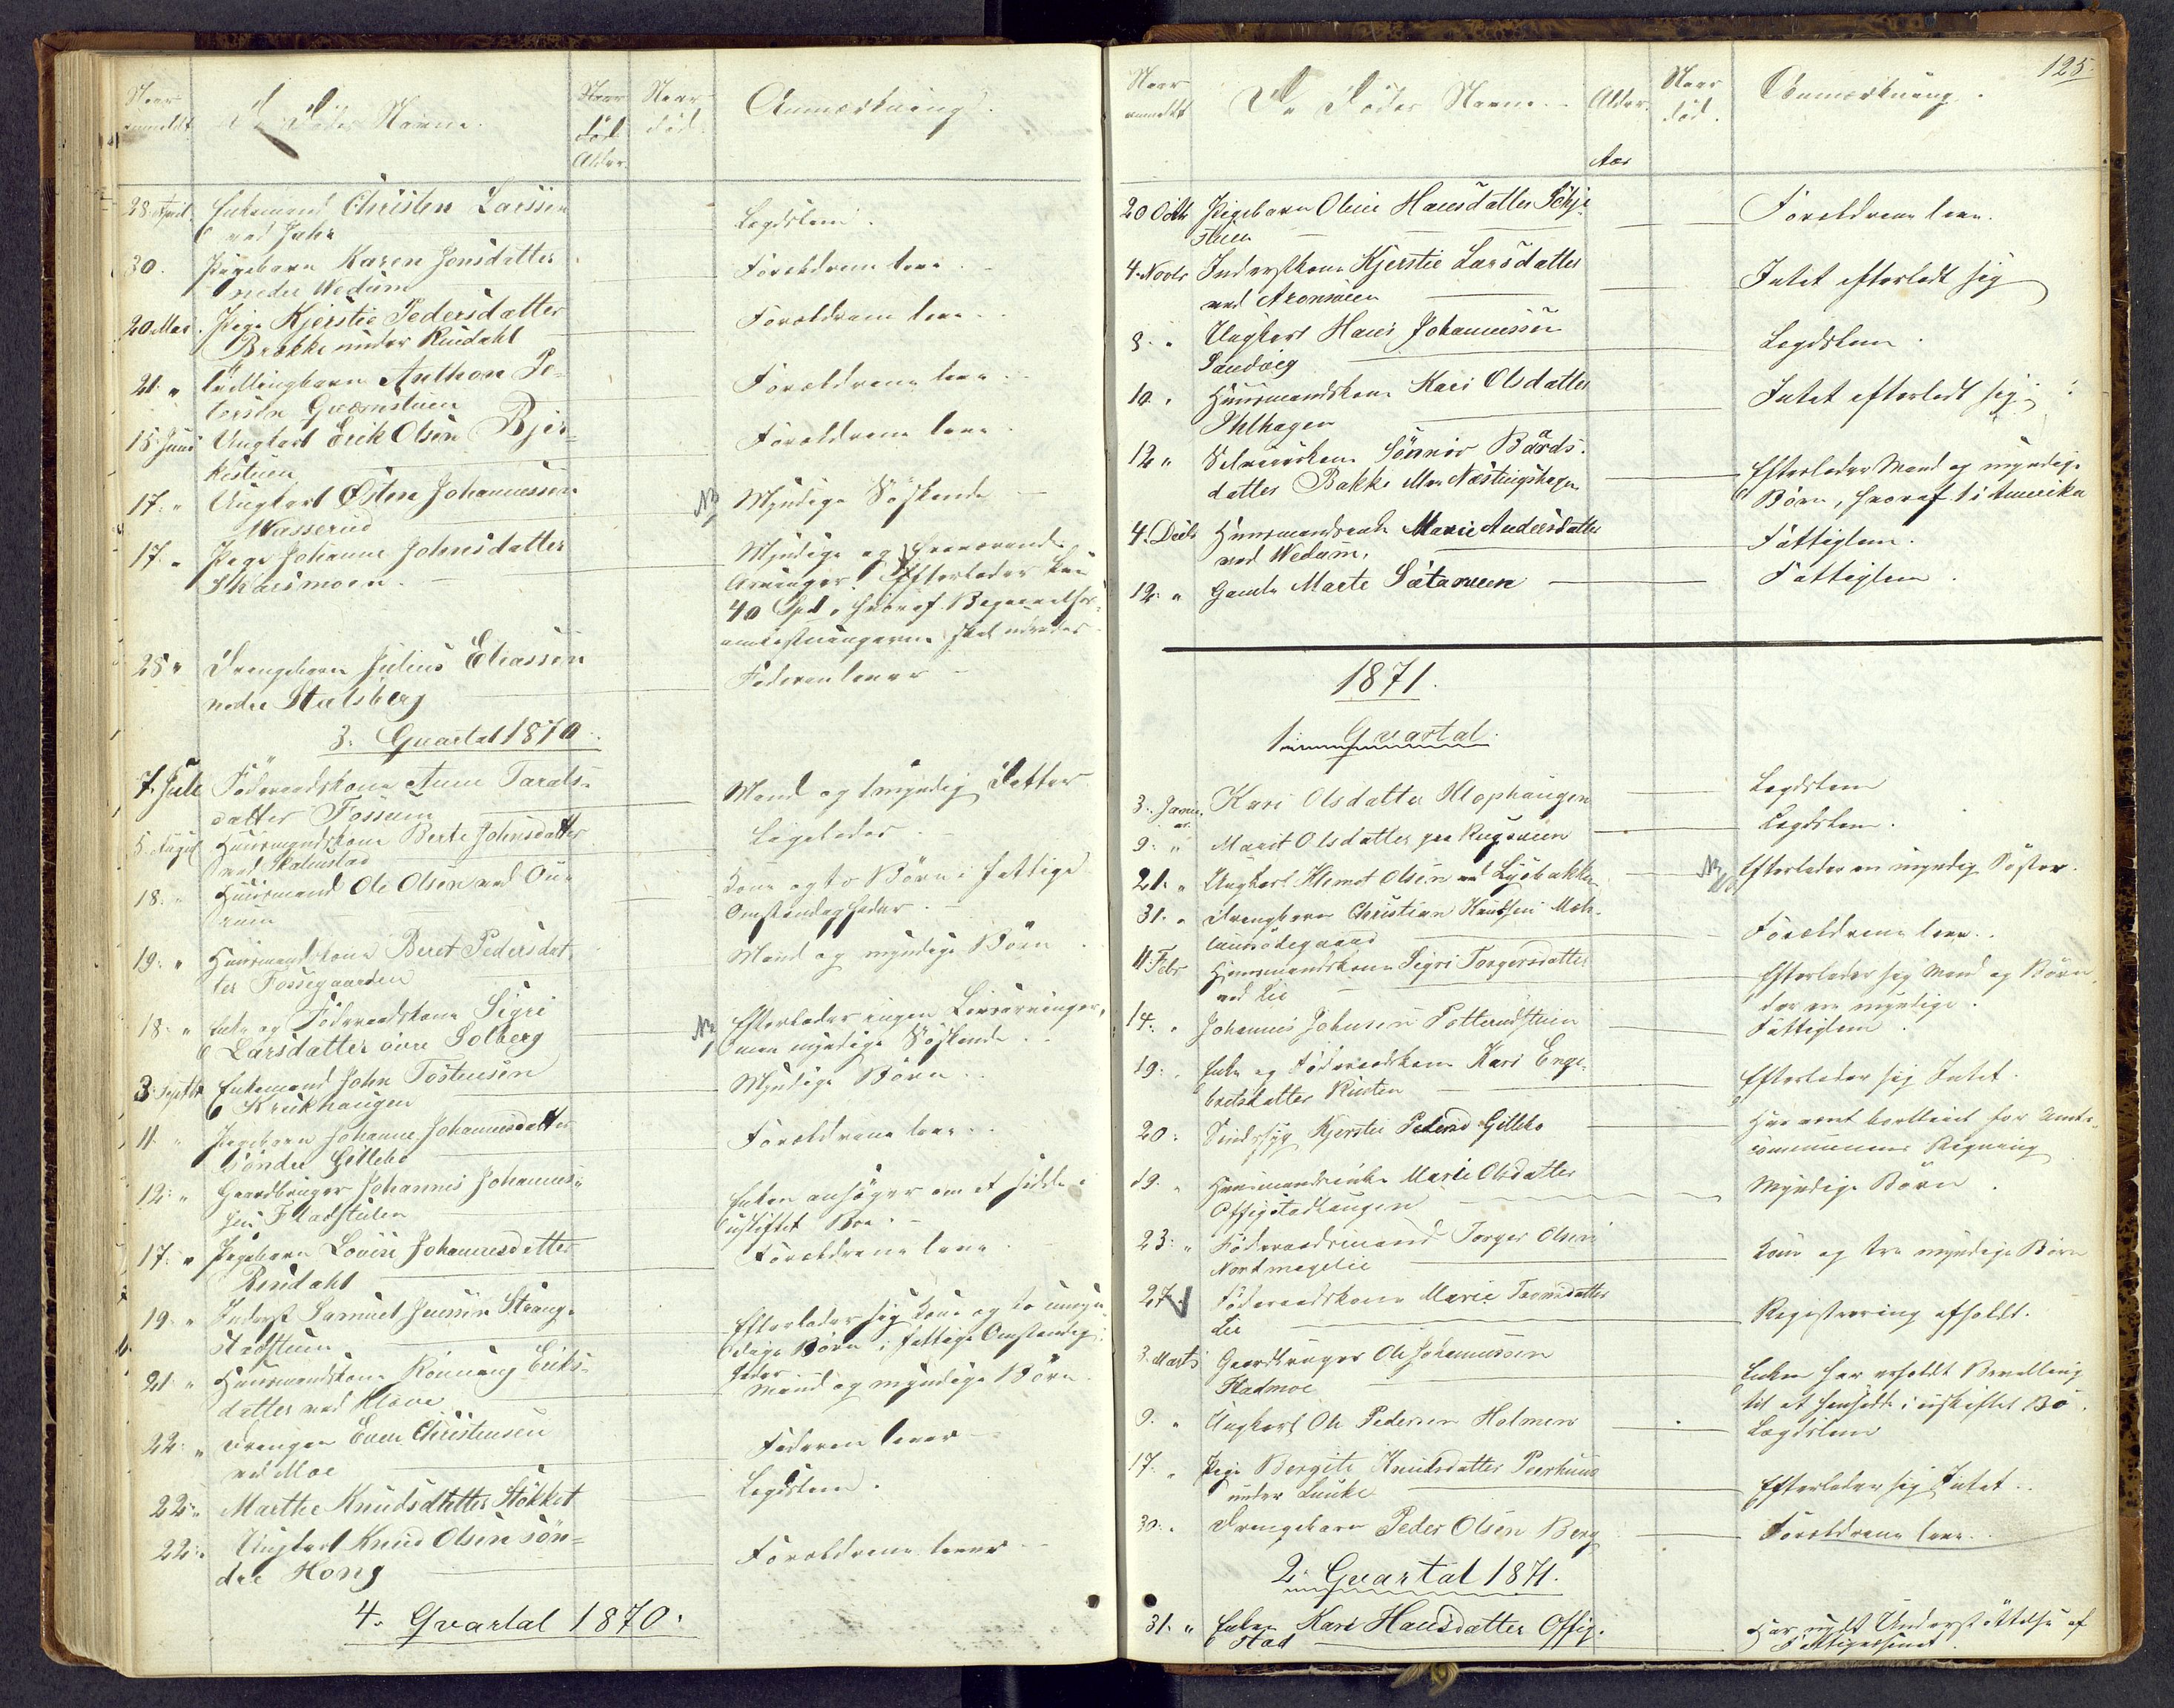 Naar
anmeldt
De Dödes Navne.
Naar
född
Alder.
Naar
död.
Anmærkning.
28. April Enkemand Christen Larssen
ved Jahr
Lægdslem.
30. Pigebarn Karen Jonsdatter
nedre Wedum
Forældrene leve.
20 Mai. Pige Kjerstie Pedersdatter
Brække under Rindahl
Forældrene leve.
21. " Tvillingbarn Anthon Pe-
tersen Græmstuen
Forældrene leve.
15 Juni Ungkarl Erik Olsen Bjer-
kestuen
Forældrene leve.
17. " Ungkarl Østen Johannessen
Wasserud
NB Myndige Søskende
17. " Pige Johanne Johnsdatter
Skaismoen.
Myndige og fraværende
Arvinger. Efterlader kun
40 Spd., hvoraf Begravelses-
omkostningerne skal udredes.
28 " Drengebarn Julius Eliassen
nedre Stalsberg
Faderen lever
3. Qvartal 1870.
7. Juli Föderaadskone Anne Tarals-
datter Fossum
Mand og 1 myndig Datter
5. August Huusmandskone Berte Johnsdatter
ved Skalmstad
Ligeledes.
18. " Huusmand Ole Olsen ved Ou-
rum
Kone og to Börn i fattige
Omstændigheder.
19. " Huusmandskone Beret Pedersdat-
ter Fossegaarden
Mand og myndige Börn.
18. " Enke og Föderaadskone Sigri
Larsdatter övre Solberg
NB Efterlader ingen Livsarvinger,
men myndige Söskende.
3. Septbr Enkemand John Tostensen
Krukhaugen
Myndige Börn.
11. " Pigebarn Johanne Johannesdatter
Söndre Gillebo
Forældrene leve.
12. " Gaardbruger Johannes Johannes-
sen Fladstulen
Enken ansöger om at sidde i
uskiftet Boe.
17. " Pigebarn Lovise Johannesdatter
Rindahl
Forældrene leve.
19. " Inderst Samuel Jenssen Strang-
stadstuen
Efterlader sig Kone og to umyn-
dige Börn i fattige Omstændig-
heder
21. " Huusmandskone Rönnaug Eriks-
datter ved Kløve
Mand og myndige Börn.
22. " Drengen Even Christensen
ved Moe
Faderen lever
22. " Marthe Knudsdatter Stokket
Lægdslem.
22. " Ungkarl Knud Olsen sön-
dre Hong
Forældrene lever
4. Qvartal 1870.
125.
Naar
anmeldt
De Dödes Navne.
Alder.
Aar
Naar
död.
Anmærkning.
20 Octbr Pigebarn Oline Hansdatter
stuen
Forældrene leve.
4. Novbr Inderstkone Kjerstie Larsdatter
ved Aronsveen
Intet efterladt sig
8. " Ungkarl Hans Johannessen
Sandvig
Lægdslem.
10. " Huusmandskone Kari Olsdatter
Ihlhagen
Intet efterladt sig
12 " Selveierkone Sönnøv Baards-
datter Bakke Næstingshagen
Efterlader Mand og myndige
Börn, hvoraf 1 i Amerika
4. Decbr Huusmandsenke Marie Andersdatter
ved Wedum.
Fattiglem.
12. " Gamle Marte Sataveen
Fattiglem.
1871.
1. Qvartal.
3. Januar. Kari Olsdatter Klophaugen
Lægdslem
9. " Marit Olsdatter paa Rugsveen
Lægdslem.
21. " Ungkarl Klemet Olsen ved Lysbakken
NB Efterlader en myndig Söster.
31. " Drengebarn Christian Knudsen Meh-
lumsödegaard
Forældrene leve.
11. Febr Huusmandskone Sigri Torgersdatter
ved Lie
Efterlader sig Mand og Börn,
der ere myndige.
14. " Johannes Johnsen Potterudstuen
Fattiglem.
19. " Enke og Föderaadskone Kari Enge-
bretsdatter Rusten
Efterlader sig Intet.
20. Sindssyg Kjersti Pedersd Gillebo
Har været bortleiet for Amts-
communens Regning
19. " Huusmandsenke Marie Olsdatter
Offigstadhaugen
Myndige Börn.
23. " Föderaadsmand Torger Olsen
Nordmegelie
Kone og tre myndige Börn
27. Föderaadskone Marie Tronsdatter
Lie
Registrering afholdt.
3. Marts Gaardbruger Ole Johannessen
Fladmoe
Enken har erholdt Bevilling
til at hensidde i uskiftet Bo.
9. " Ungkarl Ole Pedersen Holmen
Lægdslem
17. " Pige Bergite Knudsdatter Peershuus
under Lunke
Efterlader sig Intet.
30. " Drengebarn Peder Olsen Berg
Forældrene leve.
2. Qvartal 1871.
31. " Enken Kari Hansdatter Offig-
stad
Har nydt Understöttelse af
Fattigvæsenet.